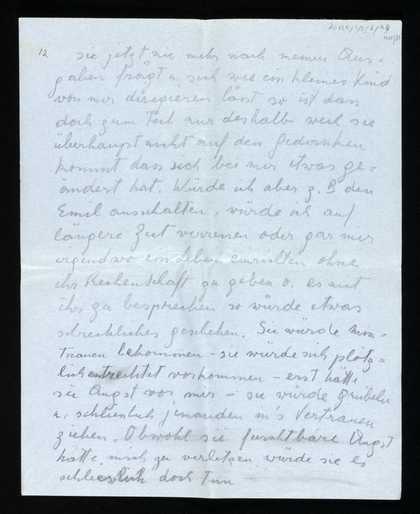 12
sie jetzt nie mehr nach meinen Aus-
gaben frägt u. sich wie ein kleines Kind
von mir dirigieren lässt so ist dass
doch zum Teil nur deshalb weil sie
überhaupt nicht auf den Gedanken
kommt dass sich bei mir etwas ge-
ändert hat. Würde ich aber z. B den
Emil ausschalten, würde ich auf
längere Zeit verreisen oder gar mir
irgendwo ein Leben einrichten ohne
ihr Rechenschaft zu geben o. es mit
ihr zu besprechen so würde etwas
schreckliches geschehen. Sie würde
trauen bekommen - sie würde sich plötz-
lich entrechtet vorkommen - erst hätte
sie Angst vor mir - sie würde grübeln
u. schliesslich jemanden in's Vertrauen
ziehen. Obwohl sie furchtbare Angst
hätte mich zu verletzen würde sie es
schliesslich doch tun